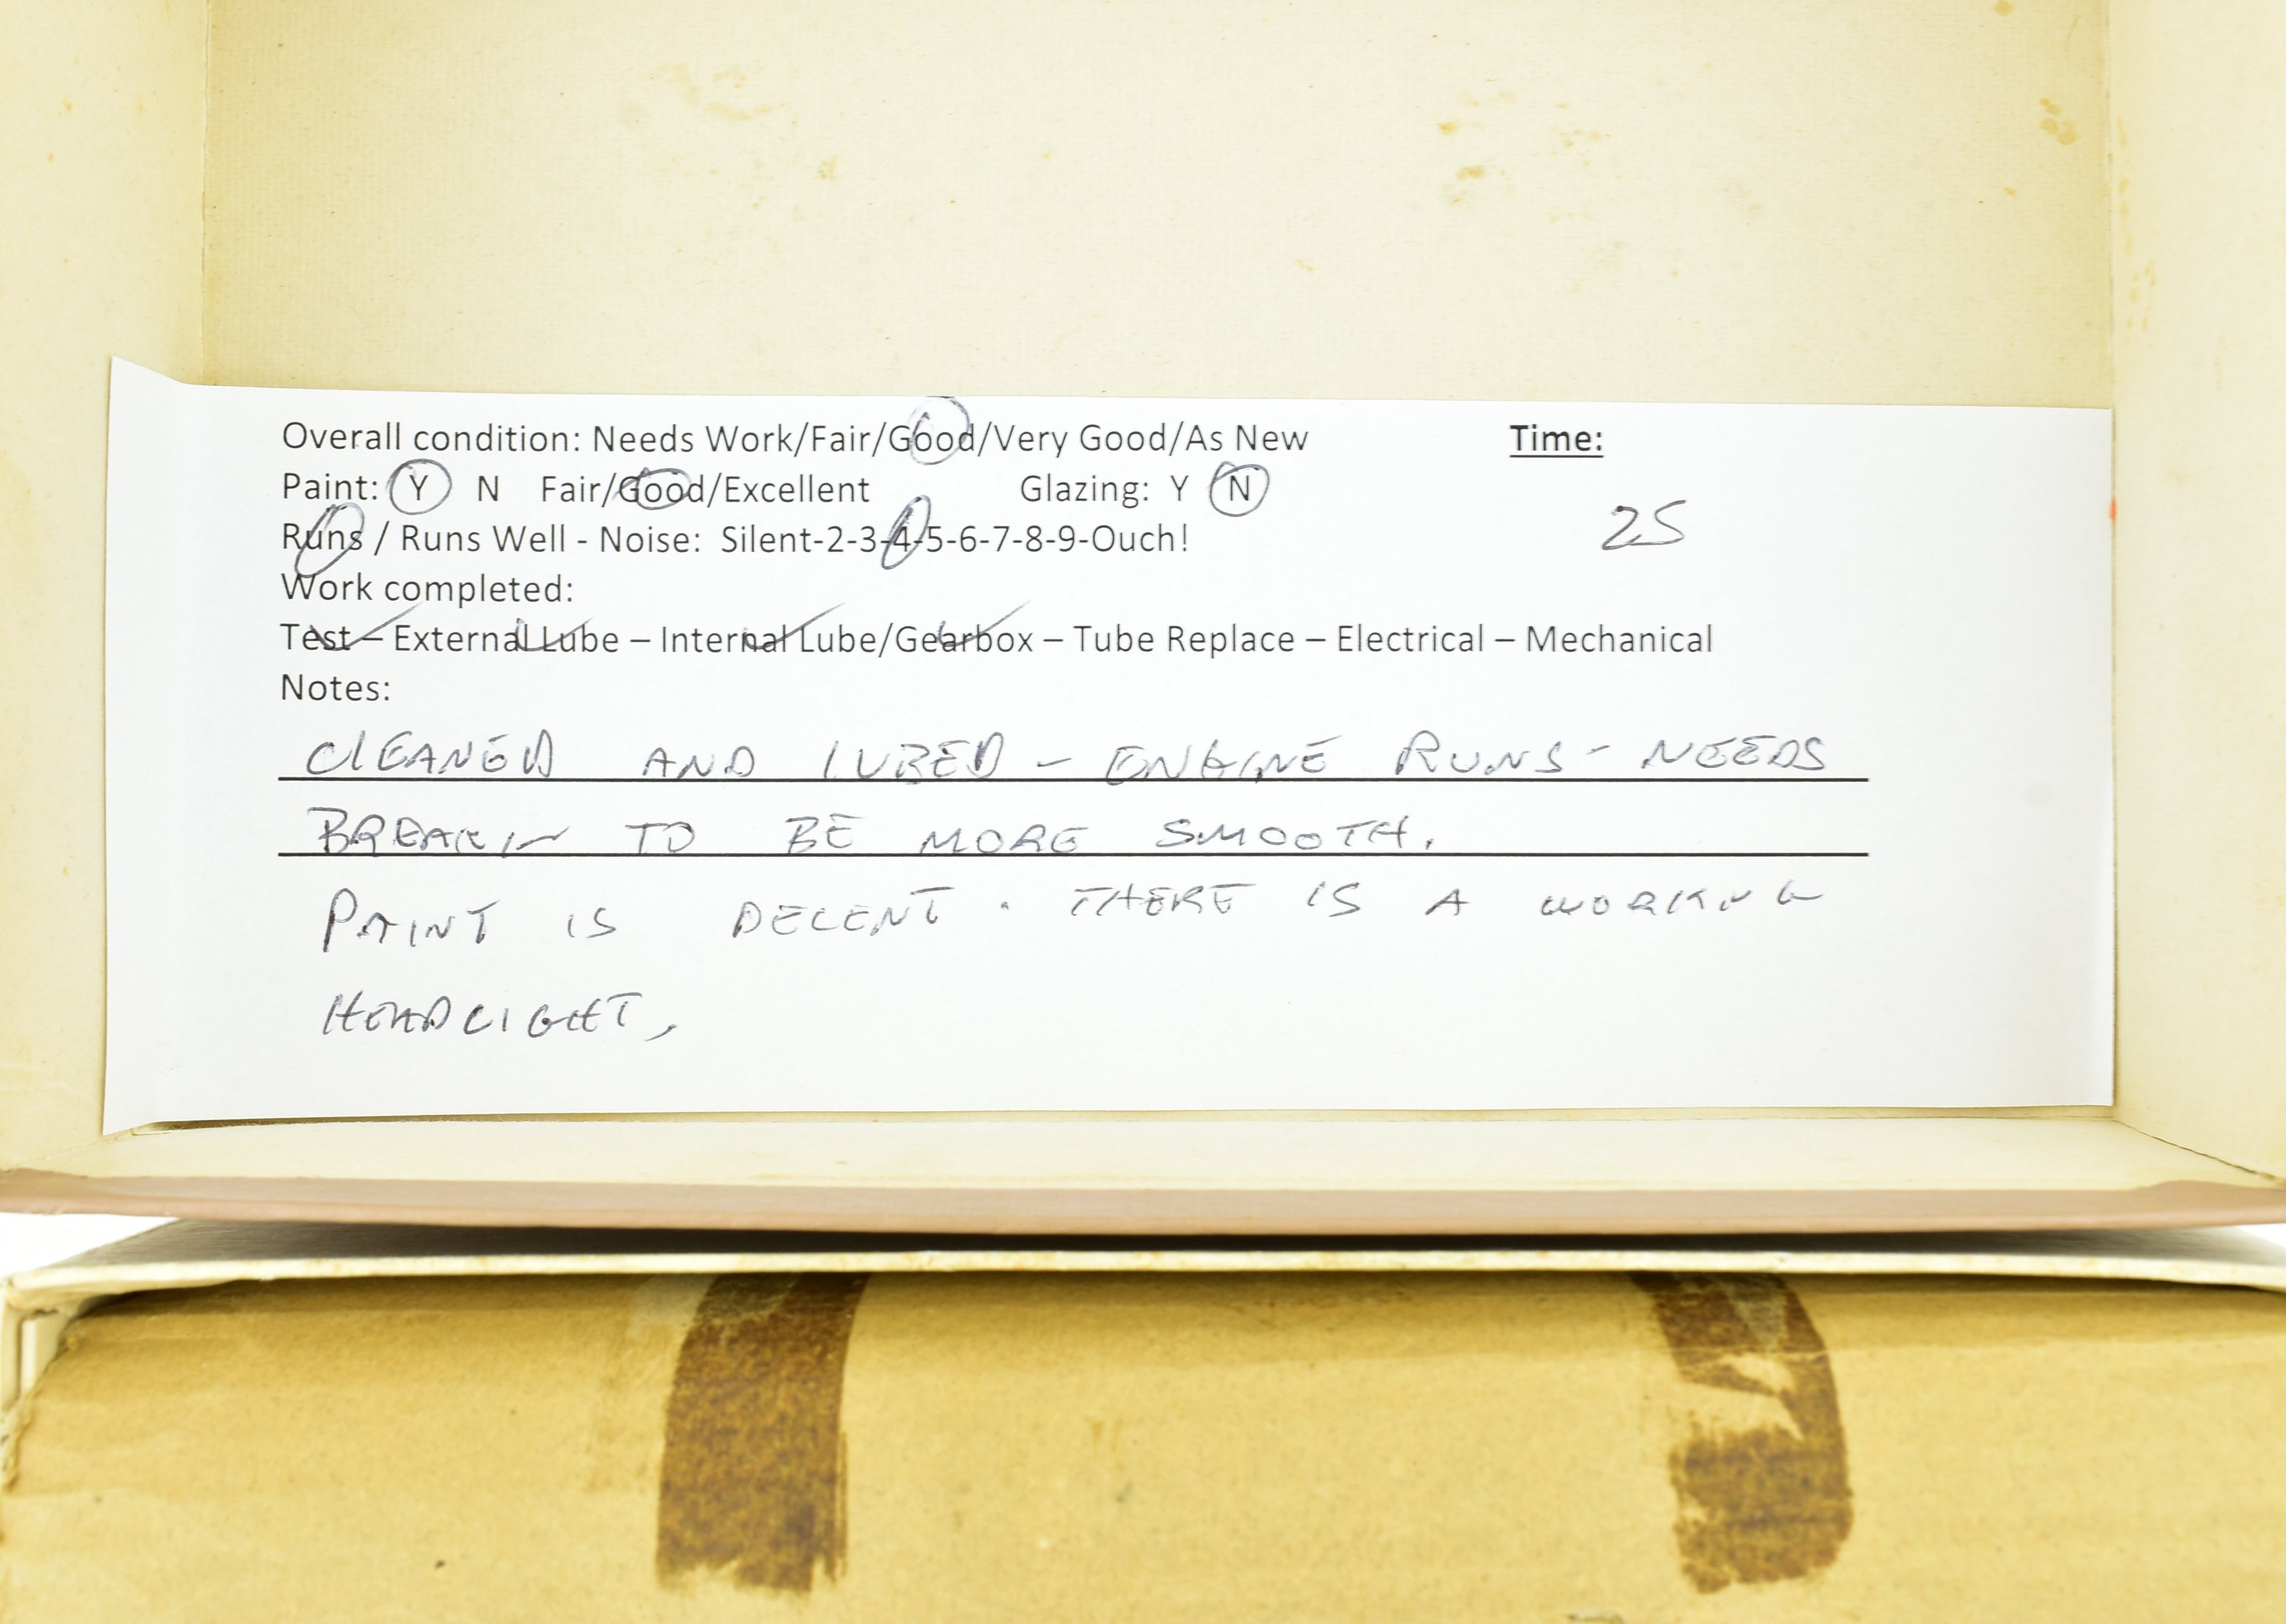 Overall condition: Needs Work/Fair/Good/Very Good/As New Time:
Paint: Y N Fair/Good/Excellent Glazing: Y N
25
Runs / Runs Well - Noise: Silent-2-3-4-5-6-7-8-9-Ouch!
Work completed:
Test – External Lube – Internal Lube/Gearbox – Tube Replace – Electrical – Mechanical
Notes:
CLEANED AND LUBED - ENGINE RUNS - NEEDS
BREAKIN TO BE MORE SMOOTH.
PAINT IS DECENT. THERE IS A WORKING
HEADLIGHT,